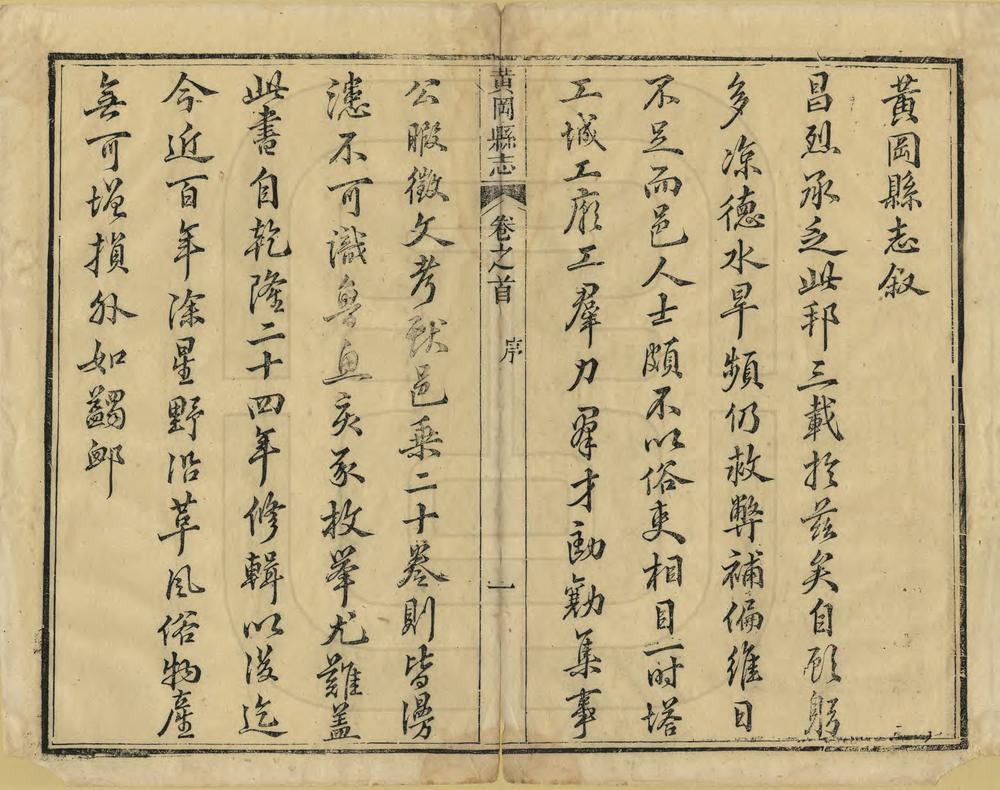 黃岡縣志叙
昌烈承乏此邦三載於茲矣自顧躬
多涼德水旱頻仍救弊補偏維日
不足而邑人士頗不以俗吏相目一時塔
工城工廟工羣力羣才勷集事
黃岡縣志 卷之首 序 一
公暇徵文考獻邑乘二十卷則皆漫
漶不可識魯魚亥豕枚舉尤難蓋
此書自乾隆二十四年修輯以後迄
今近百年除星野沿革風俗物產
無可增損外如蠲卹